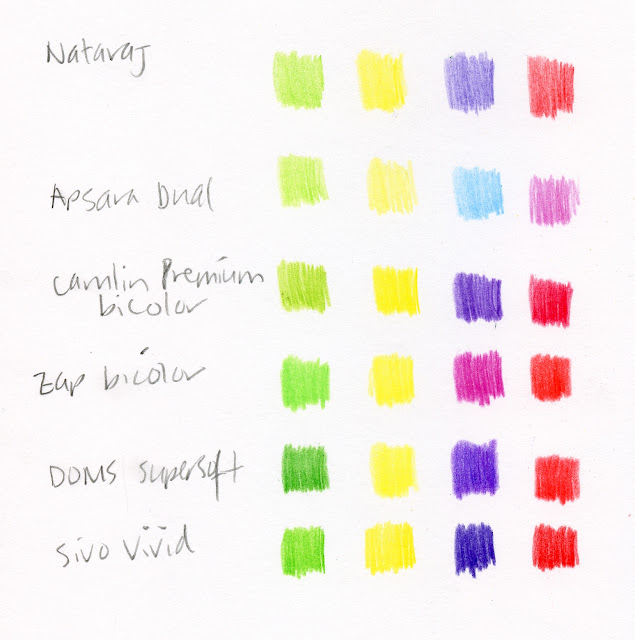 Nataraj
Apsara Dual
Camlin Premium
bicolor
Zap bicolor
DOMS supersoft
Sivo Vivid